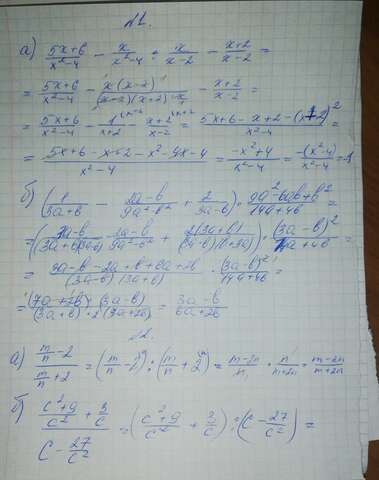 №1.
а) (5x+6)/(x²-4) - x/(x²-4) : x/(x-2) - (x+2)/(x-2) =
= (5x+6)/(x²-4) - x(x-2)/((x-2)(x+2)x) - (x+2)/(x-2) =
= (5x+6)/(x²-4) - 1/(x+2) - (x+2)/(x-2) = (5x+6-x+2-(x+2)²)/(x²-4) =
= (5x+6-x+2-x²-4x-4)/(x²-4) = (-x²+4)/(x²-4) = -(x²-4)/(x²-4) = -1
б) (1/(3a+b) - (2a-b)/(9a²-b²) + 2/(3a-b)) · (9a²-6ab+b²)/(14a+4b) =
= ((3a-b)/((3a+b)(3a-b)) - (2a-b)/(9a²-b²) + 2(3a+b)/((3a-b)(3a+b))) · (3a-b)²/(14a+4b) =
= (3a-b-2a+b+6a+2b)/((3a-b)(3a+b)) · (3a-b)²/(14a+4b) =
= (7a+2b)(3a-b)/((3a+b)·2(7a+2b)) = (3a-b)/(6a+2b)
№2.
а) (m/n-2)/(m/n+2) = (m/n-2) : (m/n+2) = (m-2n)/n · n/(m+2n) = (m-2n)/(m+2n)
б) ((c²+9)/c²+3/c)/(c-27/c²) = ((c²+9)/c²+3/c) : (c-27/c²) =